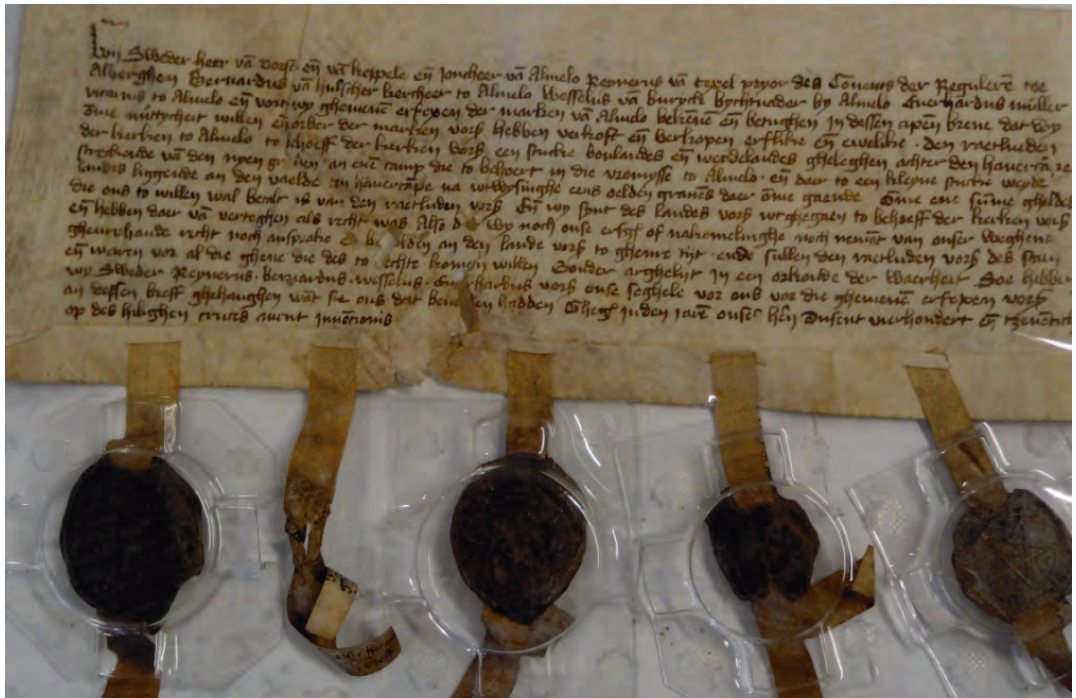 Wij Sweder heer vā voerst eñ vā keppele eñ Joncheer vā Almelo Reynerus vā texel pryor des Cōvents der Regulerē toe
Alberghen Bernardus vā hulscher kercheer to Almelo Wesselus vā buryck bychtuader by Almelo Euerhardus müller
vicarius to Almelo eñ vort wy ghemenē erfexen der marken vā Almelo bekēnē eñ betughen in dessen apen breue dat wy
ōme nuttycheit willen eñ orber der marken vors hebben verkoft eñ verkopen erflike eñ ewelike den raetlueden
der kerken to Almelo to behoeff der kerken vors een stucke boulandes eñ weydelandes gheleghen achter den hauercāpe
streckende vā den nyen gr uen an enē camp die to behoert in die vromysse to Almelo eñ daer to een kleyne stucke weyde
landes liggende an den vaelde an hauercāpe na wtwysinghe eens olden grauens daer ōme gaende Ōme ene sūme gheldes
die ons to willen wal betalt is van den raetluden vors Eñ wy synt des landes vors wtghegaen to behoeff der kerken vors
eñ hebben daer vā vertegen als recht was Also d wy noch onse erfg of nakomelinghe noch nemāt van onser weghene
ghenrehande recht noch ansprake be den an den lande vors to ghenre tijt ende sullen den raetluden vors des staen
eñ waren vor al die ghene die des to rechte komen willen Sonder arghelist in een orkonde der waerheit Soe hebben
wy Sweder Reynerus Bernardus Wesselus Euerhardus vors onse seghele vor ons vor die ghemenē erfexen vors
an dessen breff ghehanghen wāt sie ons dat beuolen hadden Gheg in den iarē onses hēn Dusent vierhondert eñ tzeuētich
op des hilighen cruces auent inuētionis